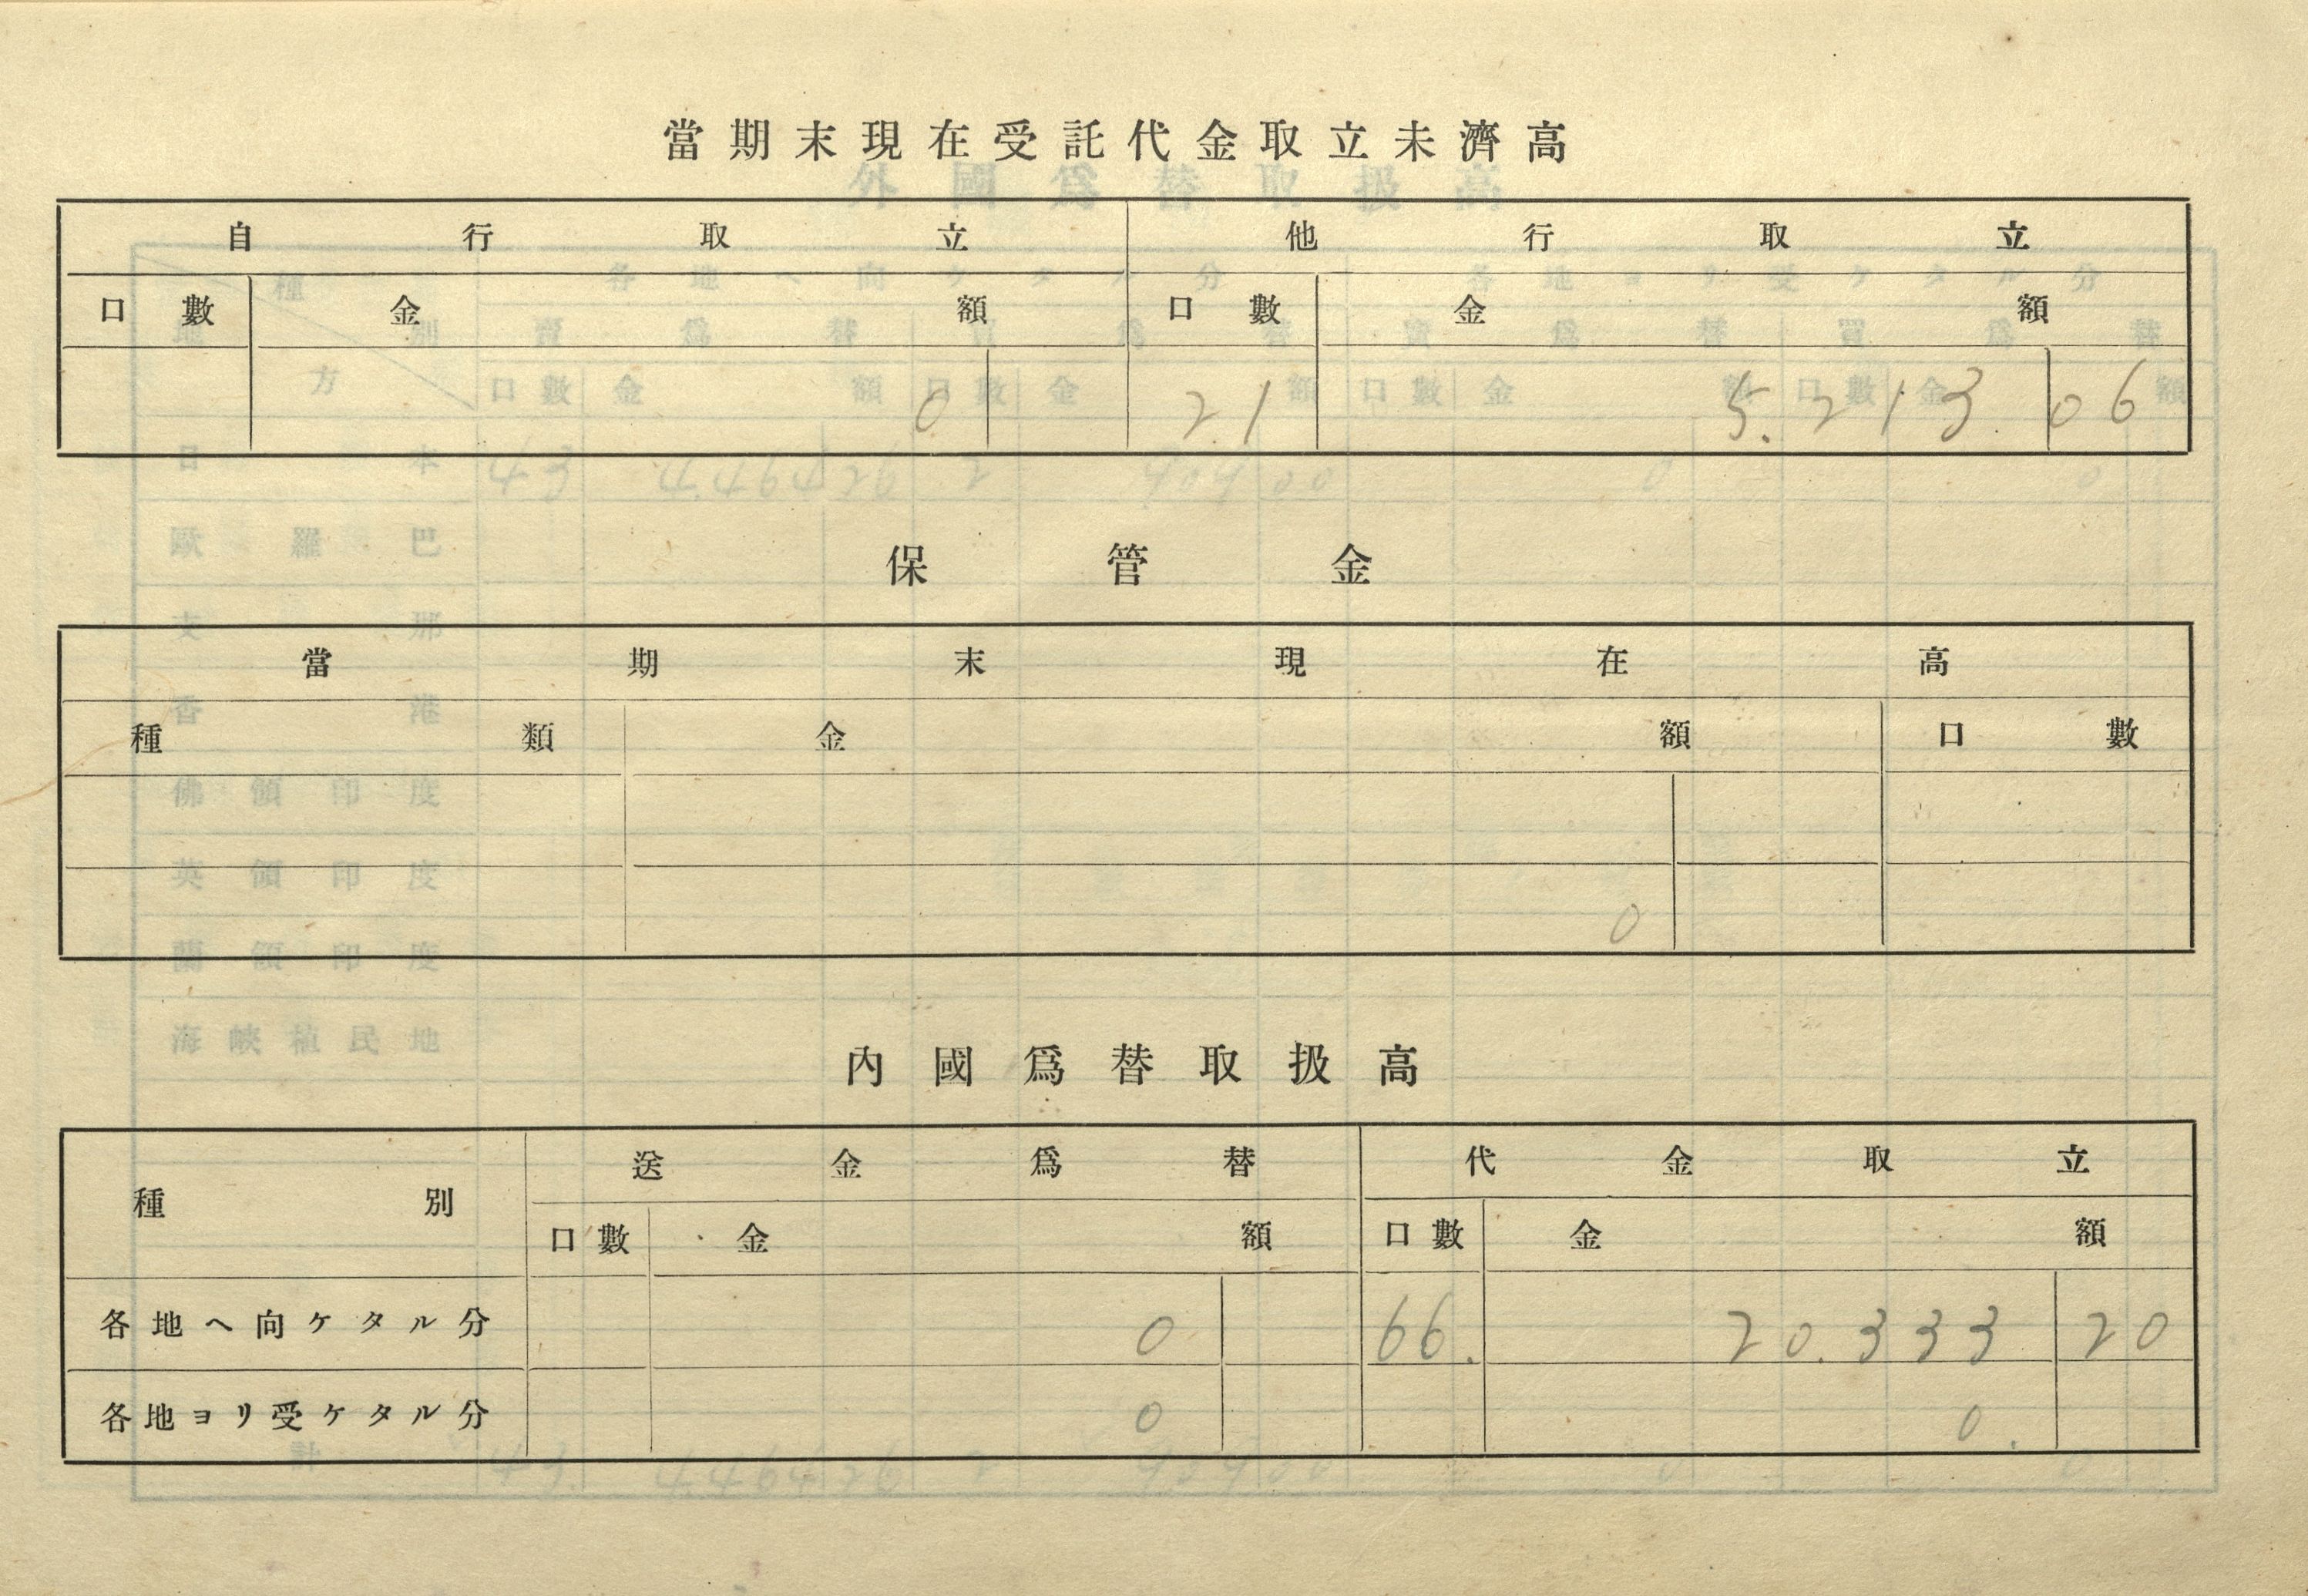 當期末現在受託代金取立未濟高
自行取立 他行取立
口數 金額 口數 金額
0 21 5.213.06
保管金
當期末現在高
種類 金額 口數
0
內國爲替取扱高
種別 送金爲替 代金取立
口數 金額 口數 金額
各地ヘ向ケタル分 0 66. 20.333 20
各地ヨリ受ケタル分 0 0.